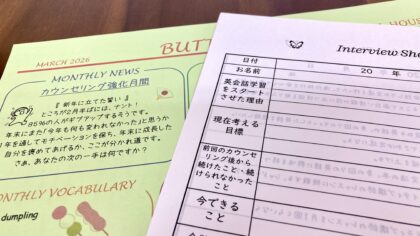 MARCH 2026
BUTT
MONTHLY NEWS
カウンセリング強化月間
『 新年に立てた誓い 』
ところが2月半ばには、ナント!
95%の人がギブアップするそうです。
年末にまた「今年も何も変われなかった」と思うか
1年を通してモチベーションを保ち、年末に成長した
自分を褒めてあげるか、ここが分かれ道です。
さあ、あなたの次の一手は何ですか?
MONTHLY VOCABULARY
dumpling
Interview She
日付
20 年
お名前
英会話学習
をスタート
させた理由
現在考える
目標
前回のカウンセ
リング後から
続けたこと・続
けられなかった
こと
今できる
こと